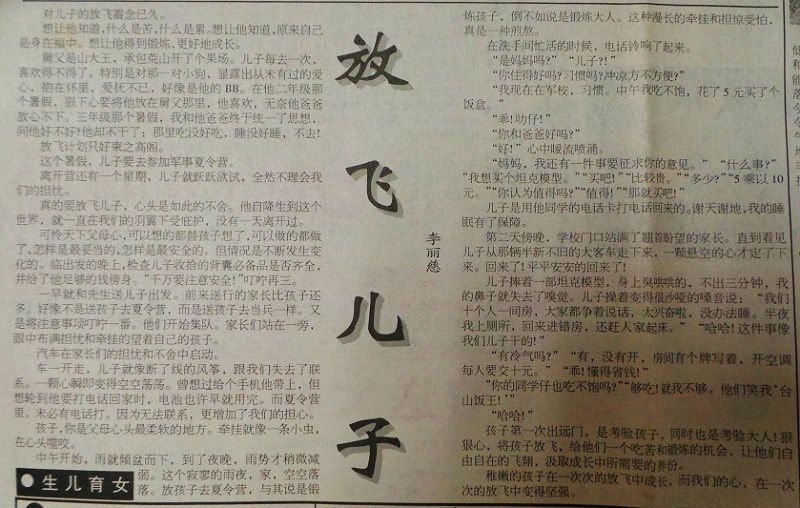 对儿子的放飞蓄念已久。
想让他知道,什么是苦,什么是累。想让他知道,原来自己
是身在福中。想让他得到锻炼,更好地成长。
舅父是山大王,承包荒山开了个果场。儿子每去一次,
喜欢得不得了。特别是对那一对小狗,显露出从未有过的爱
心,抱在怀里,爱抚不已,好像是他的BB。在他二年级那
个暑假,狠下心要将他放在舅父那里,他喜欢,无奈他爸爸
放心不下。三年级那个暑假,我和他爸爸终于统一了思想,
问他好不好?他却不干了:那里吃没好吃,睡没好睡,不去!
放飞计划只好束之高阁。
这个暑假,儿子要去参加军事夏令营。
离开营还有一个星期,儿子就跃跃欲试,全然不理会我
们的担忧。
真的要放飞儿子,心头是如此的不舍。他自降生到这个
世界,就一直在我们的羽翼下受庇护,没有一天离开过。
可怜天下父母心,可以想的都替孩子想了,可以做的都做
了,怎样是最妥当的,怎样是最安全的。但情况是不断发生变
化的。临出发的晚上,检查儿子收拾的背囊必备品是否齐全,
并给了他足够的钱傍身。“千万要注意安全!”叮咛再三。
一早就和先生送儿子出发。前来送行的家长比孩子还
多。好像不是送孩子去夏令营,而是送孩子去当兵一样。又
是将注意事项叮咛一番。他们开始集队。家长们站在一旁,
眼中布满担忧和牵挂的望着自己的孩子。
汽车在家长们的担忧和不舍中启动。
车一开走,儿子就像断了线的风筝,跟我们失去了联
系。一颗心瞬即变得空空荡荡。曾想过给个手机他带上,但
想轮到他要打电话回家时,电池也许早就用完。而夏令营
里,未必有电话打。因为无法联系,更增加了我们的担心。
孩子,你是父母心头最柔软的地方。牵挂就像一条小虫,
在心头噬咬。
中午开始,雨就倾盆而下,到了夜晚,雨势才稍微减
弱。这个寂寥的雨夜,家,空空落
落。放孩子去夏令营,与其说是锻
生儿育女
放飞儿子
李丽慈
炼孩子,倒不如说是锻炼大人。这种漫长的牵挂和担惊受怕,
真是一种煎熬。
在洗手间忙活的时候,电话铃响了起来。
“是妈妈吗?” “儿子?!”
“你住得好吗?习惯吗?冲凉方不方便?”
“我现在在军校,习惯。中午我吃不饱,花了5元买了个
饭盒。”
“乖!叻仔!”
“你和爸爸好吗?”
“好!”心中暖流喷涌。
“妈妈,我还有一件事要征求你的意见。” “什么事?”
“我想买个坦克模型。”“买吧!”“比较贵。”“多少?”“5乘以10
元。”“你认为值得吗?”“值得!”“那就买吧!”
儿子是用他同学的电话卡打电话回来的。谢天谢地,我的睡
眠有了保障。
第二天傍晚,学校门口站满了翘首盼望的家长。直到看见
儿子从那辆半新不旧的大客车走下来,一颗悬空的心才定了下
来。回来了!平平安安的回来了!
儿子捧着一部坦克模型,身上臭哄哄的,不出三分钟,我
的鼻子就失去了嗅觉。儿子操着变得很沙哑的嗓音说:“我们
十个人一间房,大家都争着说话,太兴奋啦,没办法睡。半夜
我上厕所,回来进错房,还赶人家起床。” “哈哈!这件事像
我们儿子干的!”
“有冷气吗?” “有,没有开,房间有个牌写着,开空调
每人要交十元。” “乖!懂得省钱!”
“你的同学仔也吃不饱吗?”“够吃!就我不够。他们笑我‘台
山饭王!’”
“哈哈!”
孩子第一次出远门,是考验孩子,同时也是考验大人!狠
狠心,将孩子放飞,给他们一个吃苦和锻炼的机会,让他们自
由自在的飞翔,汲取成长中所需要的养份。
稚嫩的孩子在一次次的放飞中成长,而我们的心,在一次
次的放飞中变得坚强。